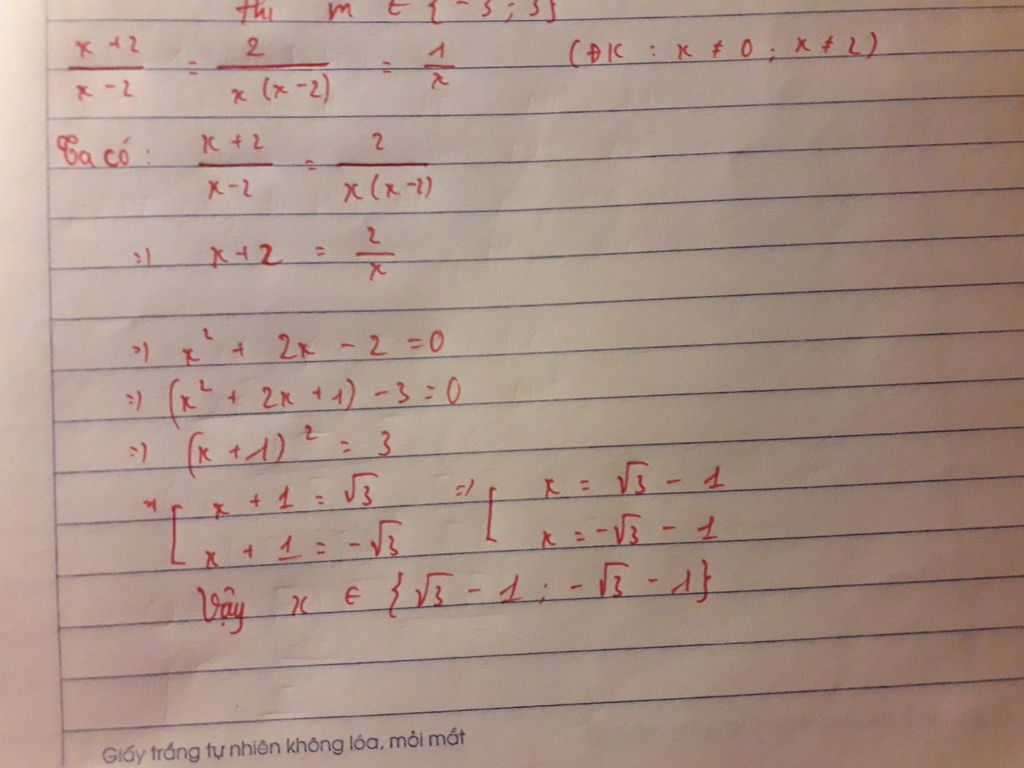 thì m ∈ {-3; 3}
x+2/x-2 = 2/x(x-2) = 1/x (ĐK : x ≠ 0 ; x ≠ 2)
Ta có : x+2/x-2 = 2/x(x-2)
=> x+2 = 2/x
=> x² + 2x - 2 = 0
=> (x² + 2x + 1) - 3 = 0
=> (x+1)² = 3
=> [ x + 1 = √3 => [ x = √3 - 1
x + 1 = -√3 x = -√3 - 1
Vậy x ∈ {√3 - 1 ; -√3 - 1}
Giấy trắng tự nhiên không lóa, mỏi mắt